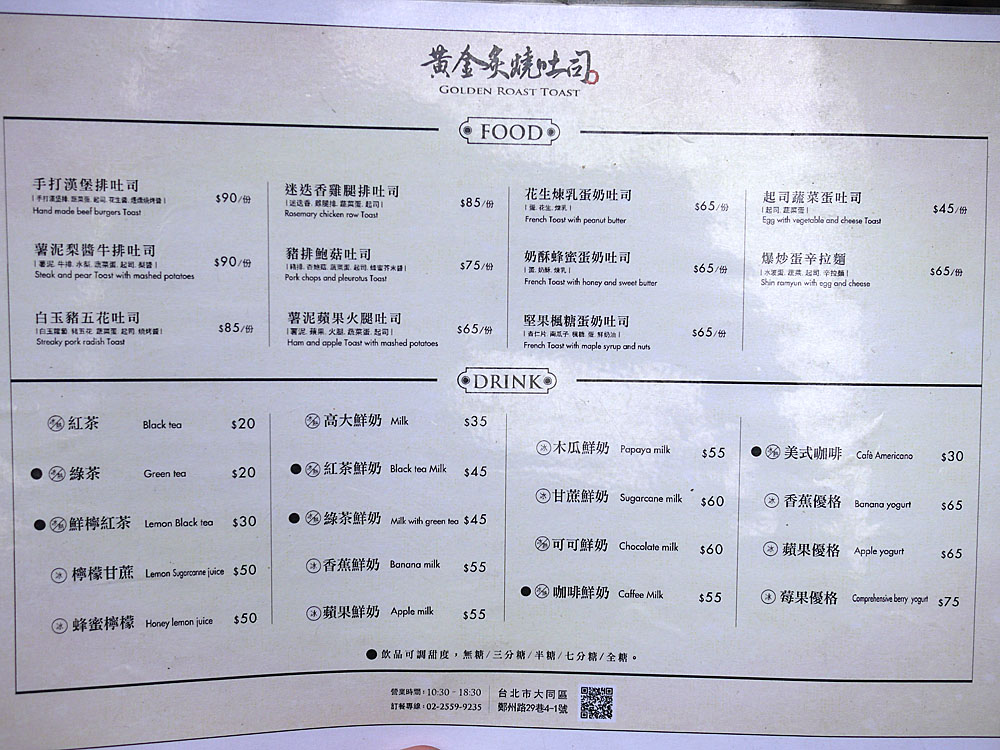 黃金炙燒吐司
GOLDEN ROAST TOAST
FOOD
手打漢堡排吐司 $90/份
|手打漢堡排. 蔬菜蛋. 起司. 花生醬. 煙燻燒烤醬|
Hand made beef burgers Toast
薯泥梨醬牛排吐司 $90/份
|薯泥. 牛排. 水梨. 蔬菜蛋. 起司. 梨醬|
Steak and pear Toast with mashed potatoes
白玉豬五花吐司 $85/份
|白玉蘿蔔. 豬五花. 蔬菜蛋. 起司. 燒烤醬|
Streaky pork radish Toast
迷迭香雞腿排吐司 $85/份
|迷迭香. 雞腿排. 蔬菜蛋. 起司|
Rosemary chicken row Toast
豬排鮑菇吐司 $75/份
|豬排. 杏鮑菇. 蔬菜蛋. 起司. 蜂蜜芥末醬|
Pork chops and pleurotus Toast
薯泥蘋果火腿吐司 $65/份
|薯泥. 蘋果. 火腿. 蔬菜蛋. 起司|
Ham and apple Toast with mashed potatoes
花生煉乳蛋奶吐司 $65/份
|蛋. 花生. 煉乳|
French Toast with peanut butter
奶酥蜂蜜蛋奶吐司 $65/份
|蛋. 奶酥. 煉乳|
French Toast with honey and sweet butter
堅果楓糖蛋奶吐司 $65/份
|杏仁片. 南瓜子. 楓糖. 蛋. 鮮奶油|
French Toast with maple syrup and nuts
起司蔬菜蛋吐司 $45/份
|起司. 蔬菜蛋|
Egg with vegetable and cheese Toast
爆炒蛋辛拉麵 $65/份
|水波蛋. 蔬菜. 起司. 辛拉麵|
Shin ramyun with egg and cheese
DRINK
冰/熱 紅茶 Black tea $20
● 冰/熱 綠茶 Green tea $20
● 冰/熱 鮮檸紅茶 Lemon Black tea $30
冰 檸檬甘蔗 Lemon Sugarcanne juice $50
冰 蜂蜜檸檬 Honey lemon juice $50
冰/熱 高大鮮奶 Milk $35
● 冰/熱 紅茶鮮奶 Black tea Milk $45
● 冰/熱 綠茶鮮奶 Milk with green tea $45
冰 香蕉鮮奶 Banana milk $55
冰 蘋果鮮奶 Apple milk $55
冰 木瓜鮮奶 Papaya milk $55
冰 甘蔗鮮奶 Sugarcane milk $60
冰/熱 可可鮮奶 Chocolate milk $60
● 冰/熱 咖啡鮮奶 Caffee Milk $55
● 冰/熱 美式咖啡 Cafè Americano $30
冰 香蕉優格 Banana yogurt $65
冰 蘋果優格 Apple yogurt $65
冰 莓果優格 Comprehensive berry yogurt $75
●飲品可調甜度，無糖/三分糖/半糖/七分糖/全糖。
營業時間：10:30 - 18:30
訂餐專線：02-2559-9235
台北市大同區
鄭州路29巷4-1號